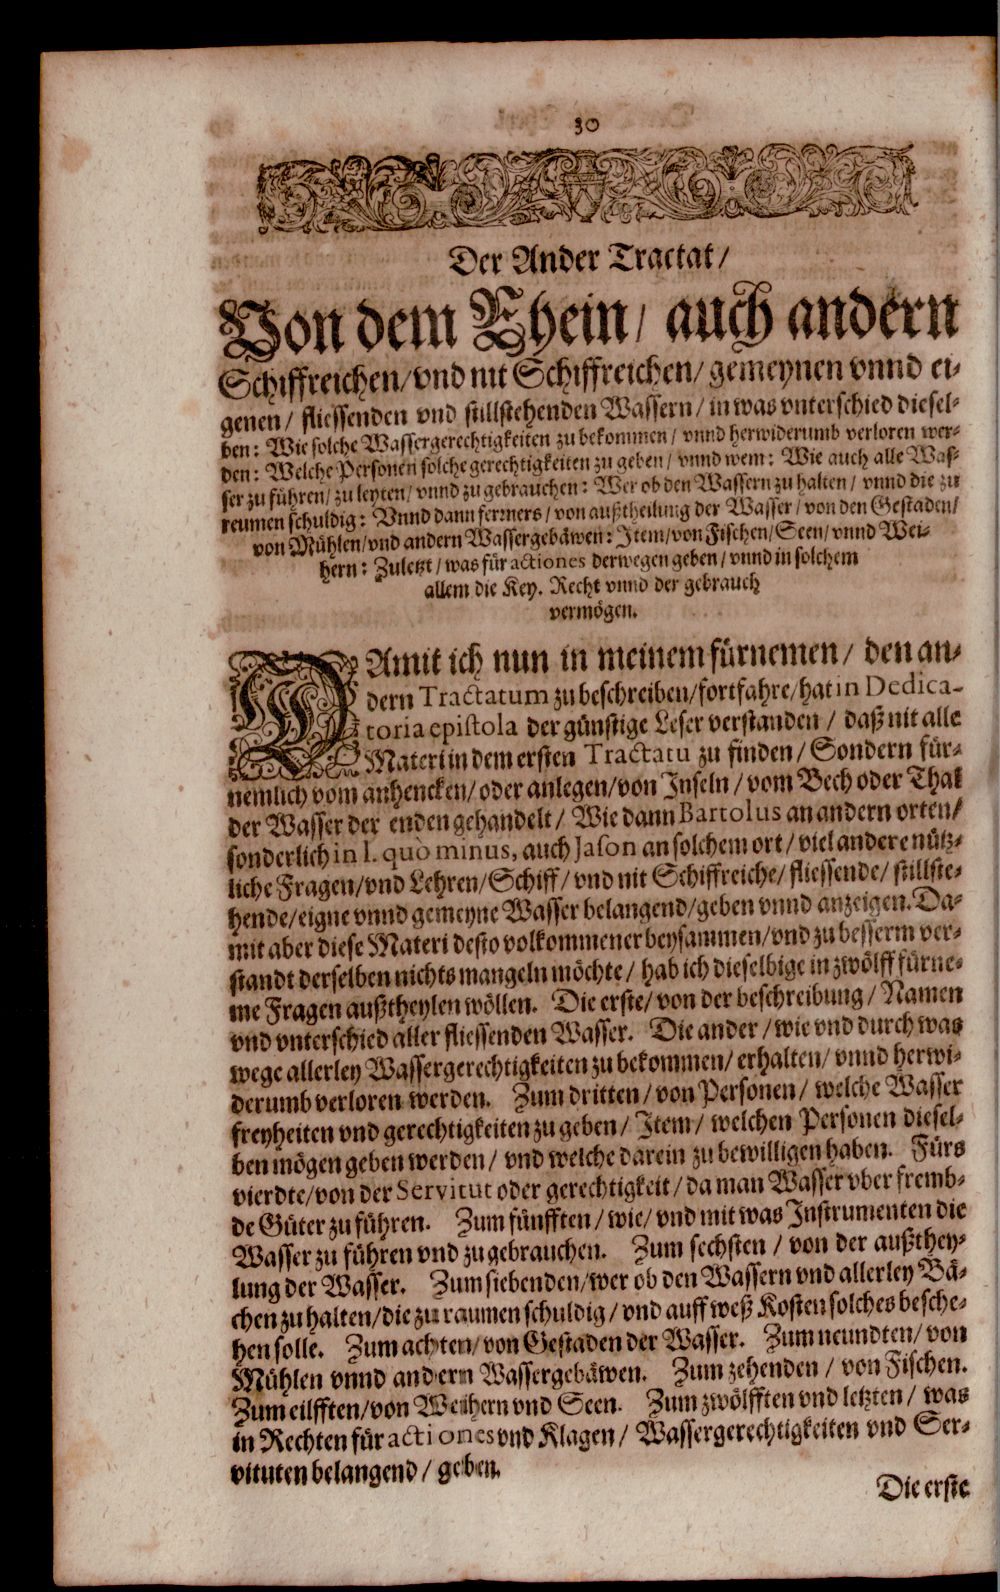 30
Der Ander Tractat/
Von dem Rhein/ auch andern
Schiffreichen/ vnd nit Schiffreichen/ gemeynen vnnd ei-
genen/ fliessenden vnd stillstehenden Wassern/ in was vnterschied diesel-
ben: Wie solche Wassergerechtigkeiten zu bekommen/ vnnd herwiderumb verloren wer-
den: Welche Personen solche gerechtigkeiten zu geben/ vnnd wem: Wie auch alle Was-
ser zu führen/ zu leyten/ vnnd zu gebrauchen: Wer ob den Wassern zu halten/ vnnd die zu
reumen schuldig: Vnnd dann ferrners/ von außtheilung der Wasser/ von den Gestaden/
von Mühlen/ vnd andern Wassergebäwen: Item/ von Fischen/ Seen/ vnnd Wei-
hern: Zuletzt/ was für actiones derwegen geben/ vnnd in solchem
allem die Key. Recht vnnd der gebrauch
vermögen.
DAmit ich nun in meinem fürnemen/ den an-
dern Tractatum zu beschreiben/ fortfahre/ hat in Dedica-
toria epistola der günstige Leser verstanden/ daß nit alle
Materi in dem ersten Tractatu zu finden/ Sondern für-
nemlich vom anhencken/ oder anlegen/ von Inseln/ vom Bech oder Thal
der Wasser der enden gehandelt/ Wie dann Bartolus an andern orten/
sonderlich in l. quo minus, auch Jason an solchem ort/ viel andere nütz-
liche Fragen/ vnd Lehren/ Schiff/ vnd nit Schiffreiche/ fliessende/ stillste-
hende/ eigne vnnd gemeyne Wasser belangend/ geben vnnd anzeigen. Da-
mit aber diese Materi desto volkommener beysammen/ vnd zu besserm ver-
standt derselben nichts mangeln möchte/ hab ich dieselbige in zwölff fürne-
me Fragen außtheylen wöllen. Die erste/ von der beschreibung/ Namen
vnd vnterschied aller fliessenden Wasser. Die ander/ wie vnd durch was
wege allerley Wassergerechtigkeiten zu bekommen/ erhalten/ vnnd herwi-
derumb verloren werden. Zum dritten/ von Personen/ welche Wasser
freyheiten vnd gerechtigkeiten zu geben/ Item/ welchen Personen diesel-
ben mögen geben werden/ vnd welche darein zu bewilligen haben. Fürs
vierdte/ von der Servitut oder gerechtigkeit/ da man Wasser vber fremb-
de Güter zu führen. Zum fünfften/ wie/ vnd mit was Instrumenten die
Wasser zu führen vnd zu gebrauchen. Zum sechsten/ von der außthey-
lung der Wasser. Zum siebenden/ wer ob den Wassern vnd allerley Bä-
chen zu halten/ die zu raumen schuldig/ vnd auff weß Kosten solches besche-
hen solle. Zum achten/ von Gestaden der Wasser. Zum neundten/ von
Mühlen vnnd andern Wassergebäwen. Zum zehenden/ von Fischen.
Zum eilfften/ von Weihern vnd Seen. Zum zwölfften vnd letzten/ was
in Rechten für actiones vnd Klagen/ Wassergerechtigkeiten vnd Ser-
vituten belangend/ geben.
Die erste